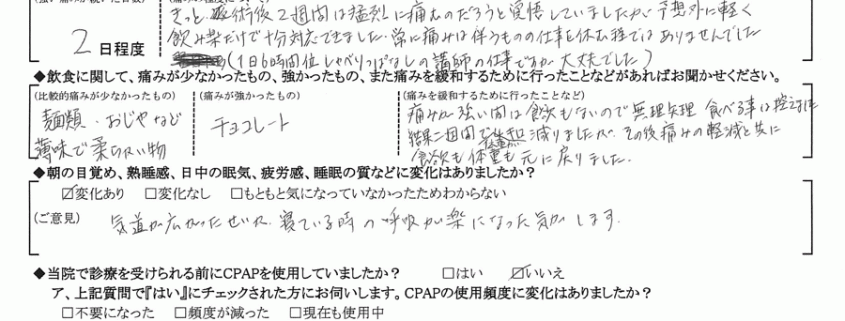 きっと術後2週間は猛烈に痛むのだろうと覚悟していましたが予想外に軽く
飲み薬だけで十分対応できました。常に痛みは伴うものの仕事を休む程ではありませんでした
2日程度
(1日6時間位しゃべりっぱなしの講師の仕事ですが大丈夫でした)
◆飲食に関して、痛みが少なかったもの、強かったもの、また痛みを緩和するために行ったことなどがあればお聞かせください。
(比較的痛みが少なかったもの) (痛みが強かったもの) (痛みを緩和するために行ったことなど)
麺類・おじやなど
薄味で柔らかい物
チョコレート
痛みが強い間は食欲もないので無理矢理食べる事は控え
結果二週間で 減りましたが、その後痛みの軽減と共に
食欲も体重も元に戻りました。
◆朝の目覚め、熟睡感、日中の眠気、疲労感、睡眠の質などに変化はありましたか?
☑変化あり □変化なし □もともと気になっていなかったためわからない
(ご意見) 気道が広がったせいか、寝ている時の呼吸が楽になった気がします。
◆当院で診療を受けられる前にCPAPを使用していましたか? □はい ☑いいえ
ア、上記質問で『はい』にチェックされた方にお伺いします。CPAPの使用頻度に変化はありましたか?
□不要になった □頻度が減った □現在も使用中